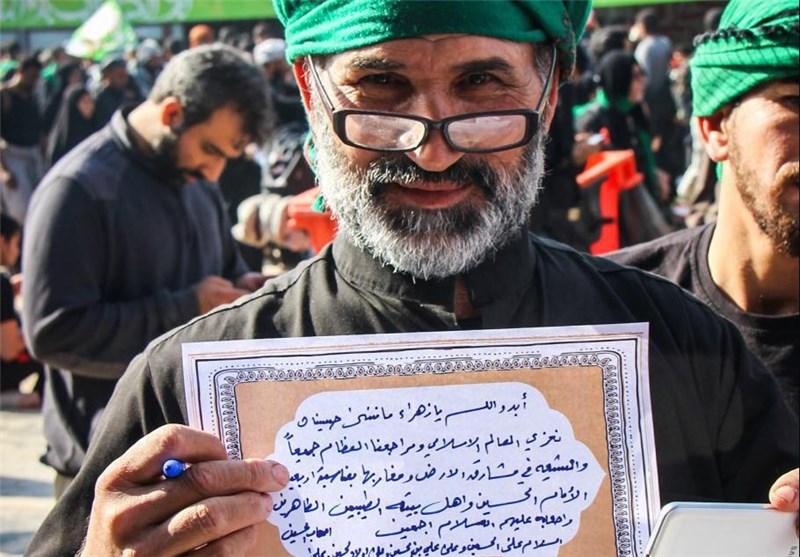 أبدو اللـه يا زهراء ماننسى حسيناه
نعزي العالم الاسلامي ومراجعنا العظام جميعاً
والشيعه في مشارق الارض ومغاربها بمناسبة اربعين
الأمام الحسين واهل بيته الطيبين الطاهرين
واصحابه عليهم السلام اجمعين
السلام على الحسين وعلى علي بن الحسين وعلى اولاد الحسين وعلى اصحاب الحسين